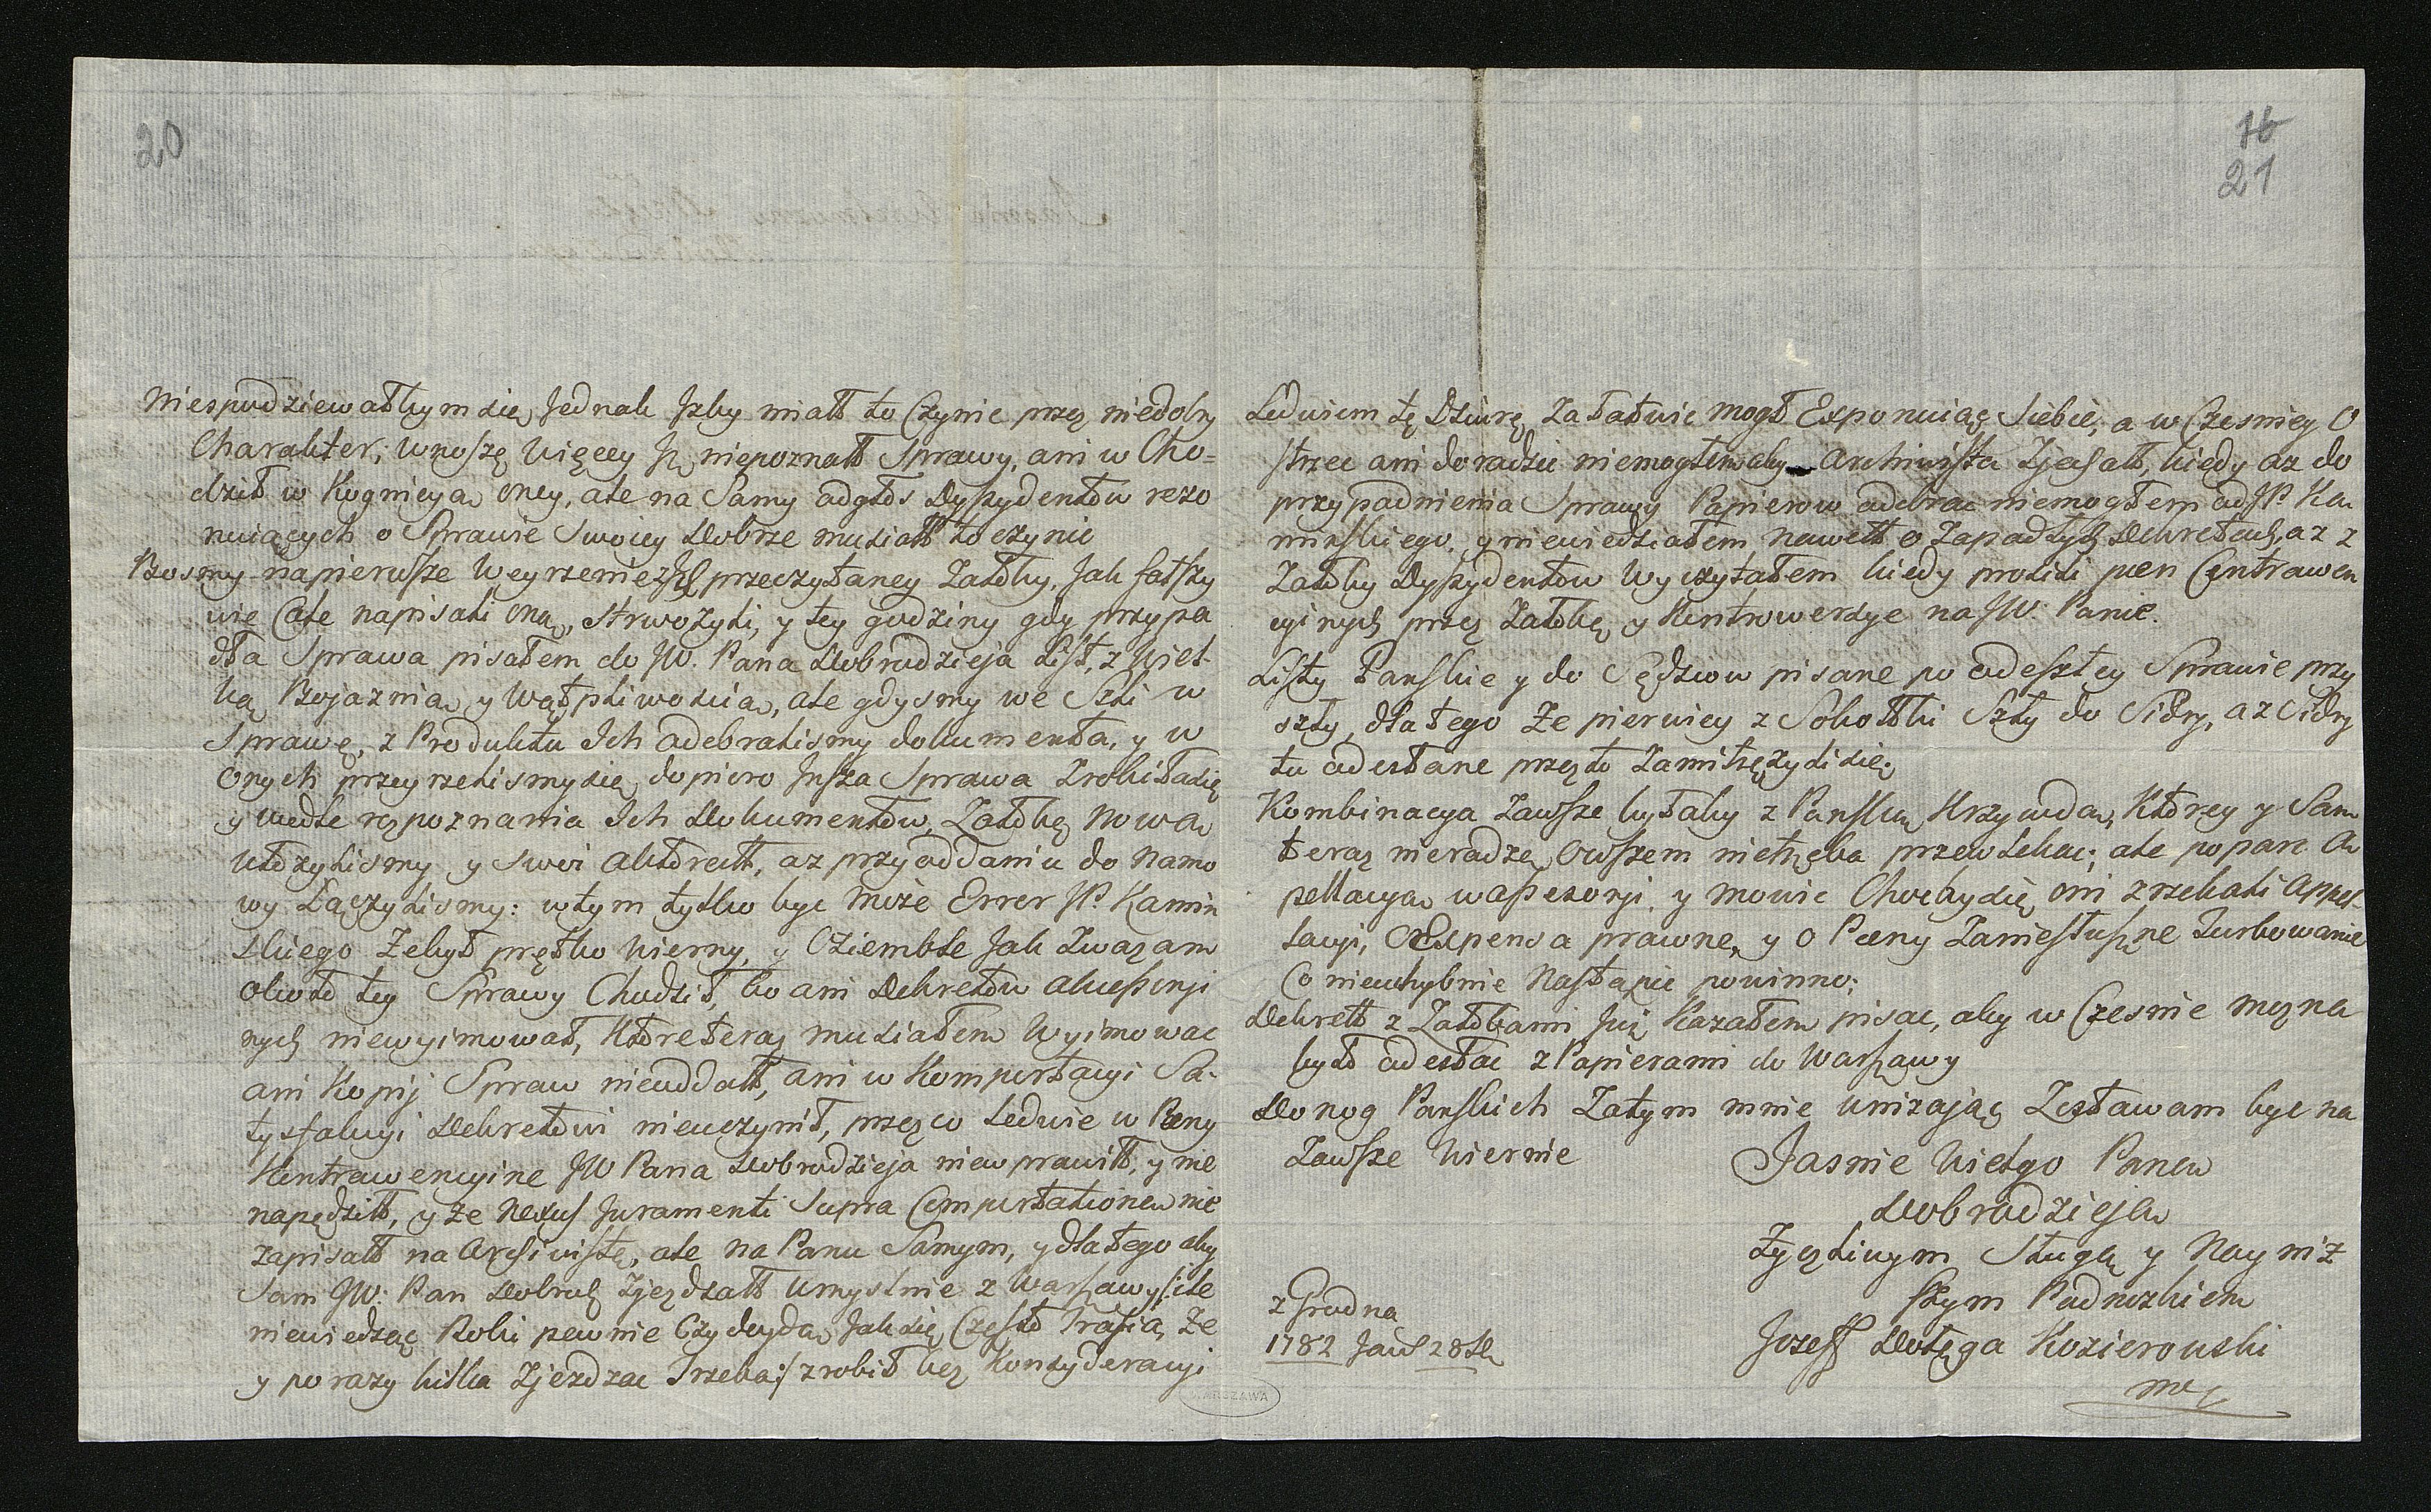 20
Niespodziewałbym się Jednak Jzby miałł to Czynic przez niedobry
Charakter; wnoszę więcey Jz niepoznałł Sprawy, ani w Cho=
dził w Kognicyą oney, ale na Samy odgłos Dyssydentow rezo
nuiących o Sprawie Swoiey Dobrze musiałł to czynic
Bosmy napierwsze Weyrzenie z Jch przeczytaney Załoby, Jak fałszy
wie Cale napisali oną, strwożyli, y tey godziny gdy przypa
dła Sprawa pisałem do JW. Pana Dobrodzieja List, z wiel-
ką Bojaznią y wątpliwoscią, ale gdysmy we Szli w
Sprawę, z Produktu Ich odebralismy dokumenta, y w
onych przeyrzelismy się dopiero Jnsza Sprawa Zrobiła się
y wedle rozpoznania Ich Dokumentow, Załobę nową
ułozylismy y swoi aktoratt, az przy oddaniu do Namo
wy Łączylismy: w tym tylko byc może Error JP. Kamin
skiego Żebył prętko wierny, y Oziemble Jak Zwazam
około tey Sprawy Chodził, bo ani Dekretow akcessorji
nych niewyimował, ktore teraz musiałem Wyimowac
ani Kopij Spraw nieoddałł, ani w Komportacyi Sa-
tysfakcyi Dekretowi nieuczynił, przez co Ledwie w Pœny
Kontrawencyine JW Pana Dobrodzieja niewprawiłł, y nie
napędziłł, y że Nexus Juramenti Supra Comportationem nie
zapisałł na Archivistę, ale na Panu Samym, y dlatego aby
Sam JW: Pan Dobrodz Zjezdzałł umyslnie z Warszawy /:ile
niewiedząc Roki pewnie Czy doydą, Jak się Często Trafia, Że
y po razy kilka Zjezdzac Trzeba:/ zrobił bez Konsyderacyi
16
21
Ledwiem tę Dziurę Załatwic mogł Exponuiąc Siebie, a w Czesniey O
strzec ani doradzic niemogłem aby Archiwista Zjechałł, kiedy az do
przypadnienia Sprawy Papierow odebrac niemogłem od JP. Ka
minskiego, y niewiedziałem nawett o Zapadłych Dekretach, az z
Załoby Dyssydentow Wyczytałem kiedy prosili pœn Contrawen
cyinych przez Załobę y Kontrowersye na JW. Panie.
Listy Pańskie y do Sędziow pisane po odeszłey Sprawie przy
szły, dlatego Ze pierwiey z Sokołki Szły do Sidry, a z Sidry
tu odesłane przez to Zamitrężyli się;
Kombinacya Zawsze byłaby z Pańską Krzywdą, Ktorey y Sam
teraz nieradzę, Owszem nietrzeba przewlekac; ale poparc A
pellacyą w assessorji, y mowic Choćby się oni zrzekali Appel-
lacyi, o Expensa prawne, y o Pœny Zaniesłuszne Turbowanie
Co nieuchybnie Nastąpic powinno;
Dekrett z Załobami Już Kazałem pisac, aby w Czesnie mozna
było odesłac z Papierami do Warszawy
Do nog Pańskich Zatym mnie unizając Zostawam byc na
Zawsze Wiernie
Jasnie Wielgo Pana
Dobrodzieja
Zyczliwym Sługą y Nayniż
szym Podnozkiem
Jozeff Dołęga Kozierowski
mp
z Grodna
1782 Jan 28 D.
WARSZAWA